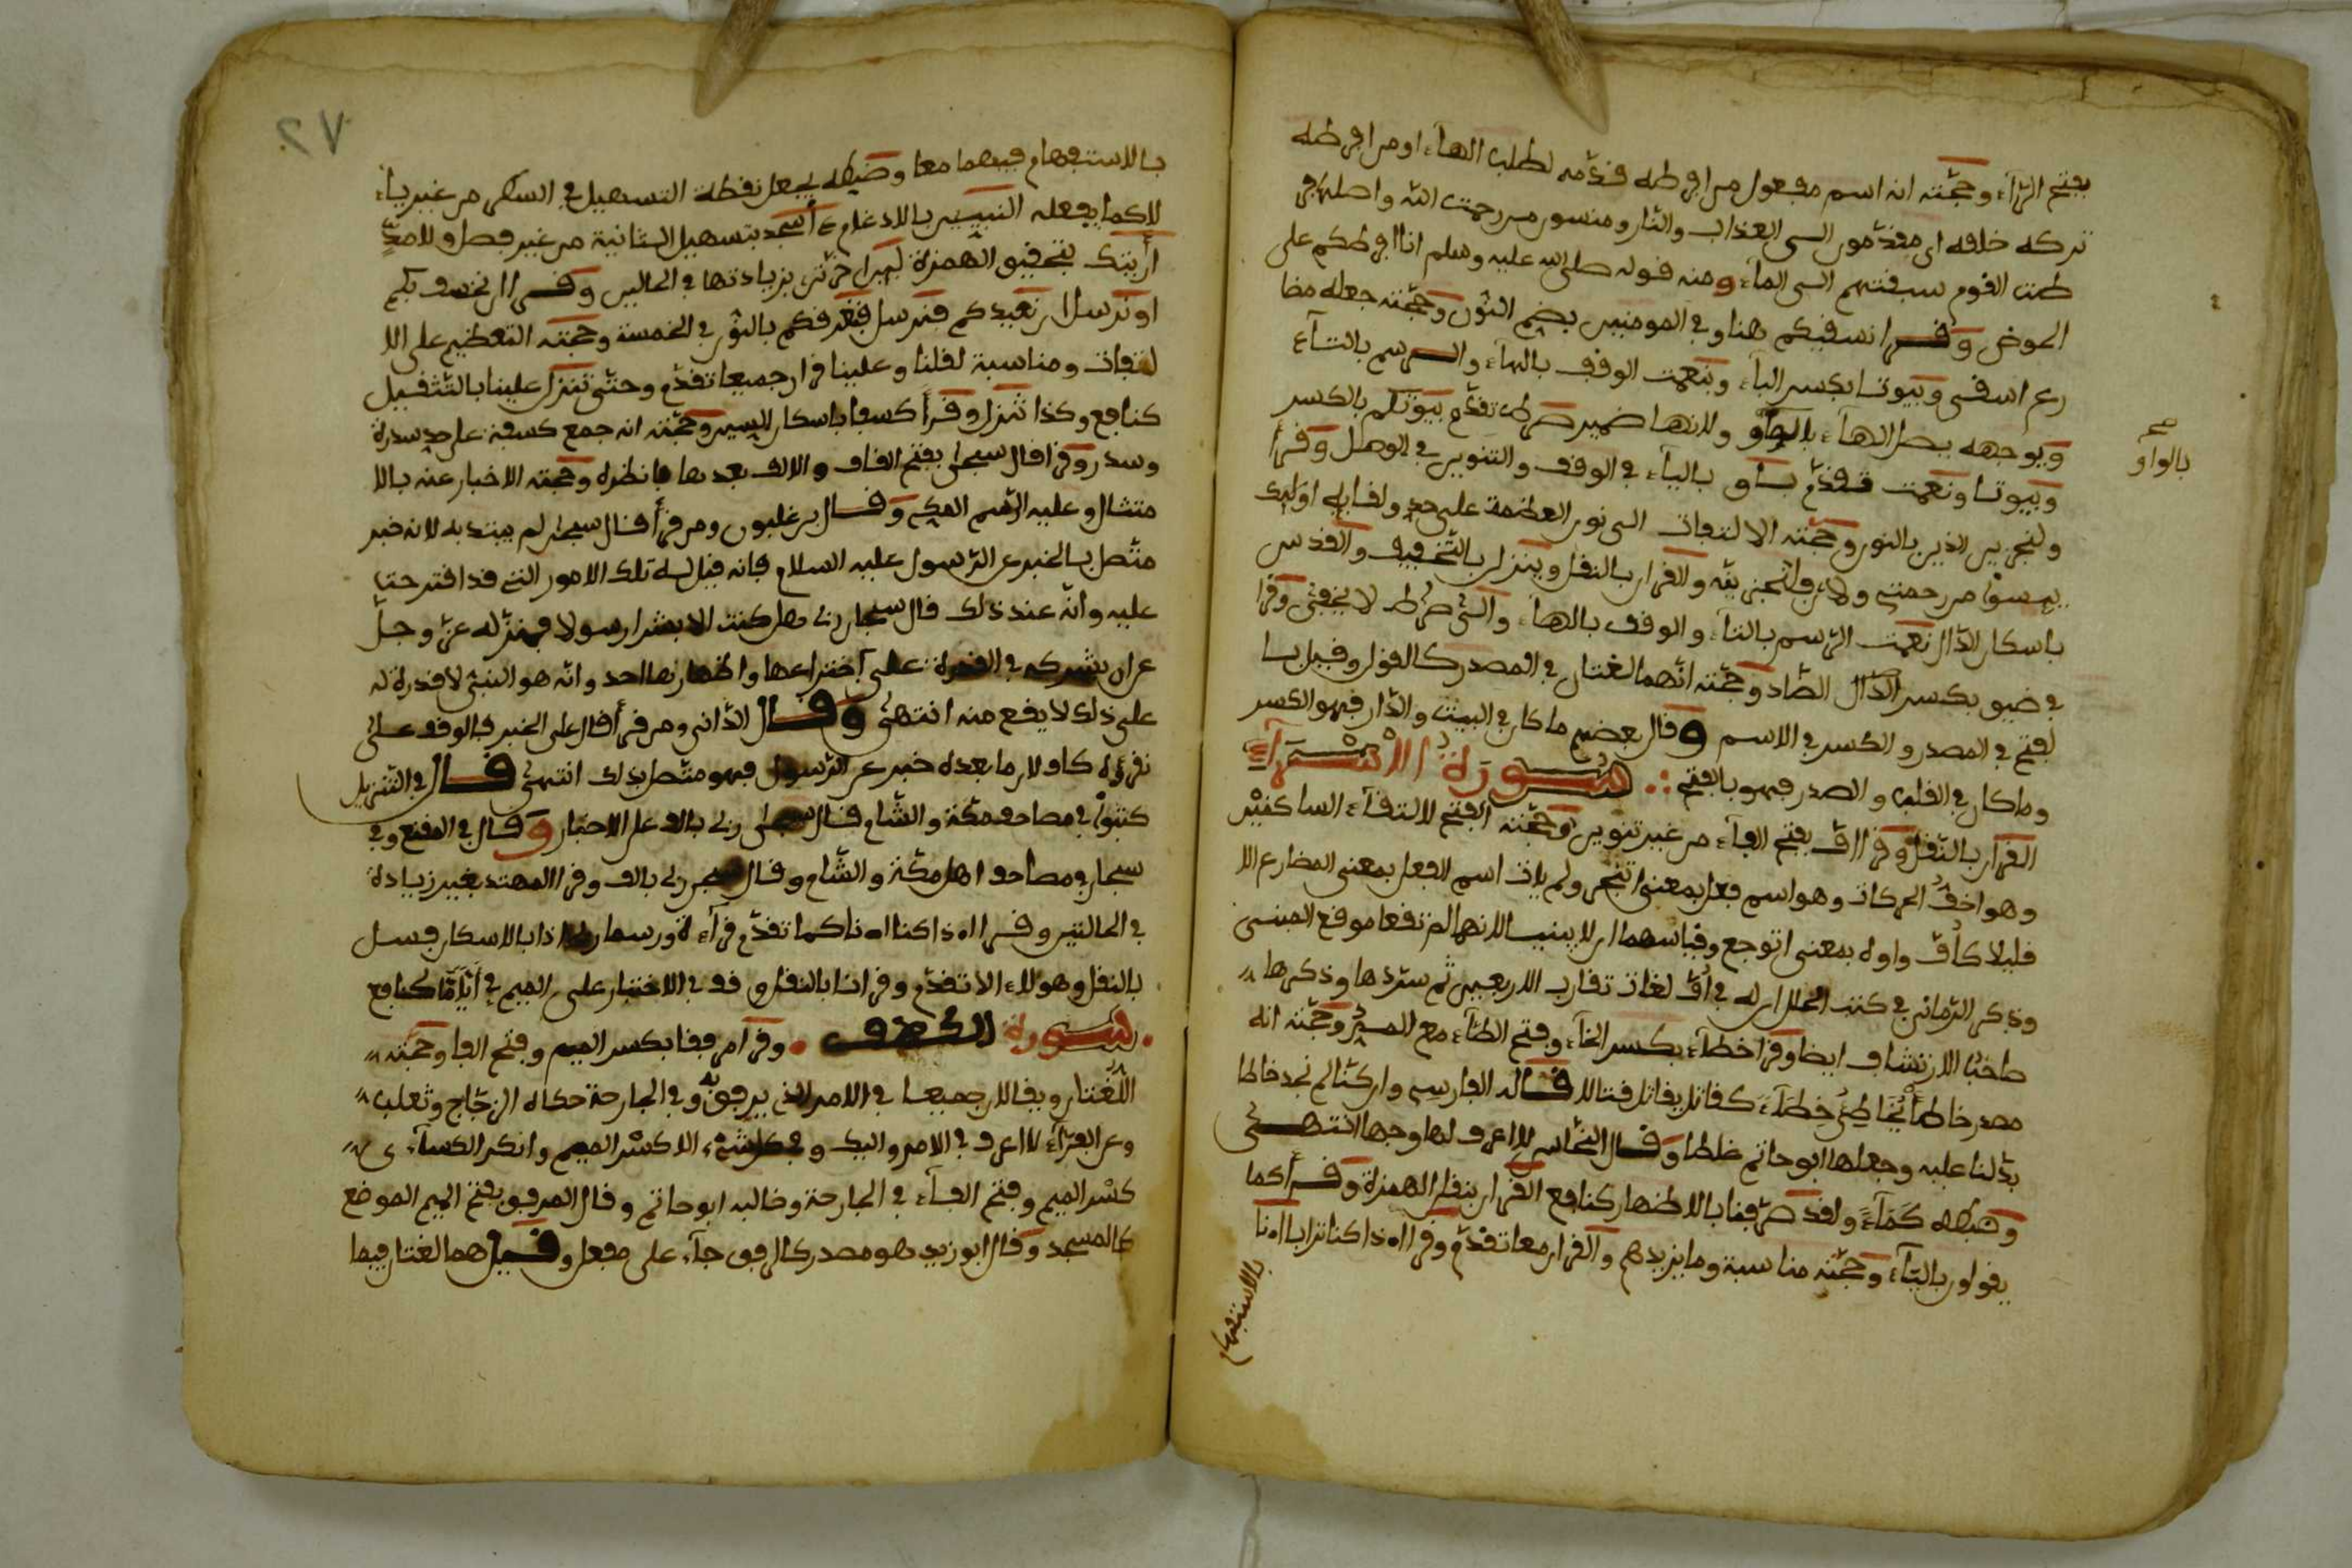 بفتح الرّآء وحجّته انه اسم مفعول من افرطه فدّمه لطلب المآء او من افرطه
تركه خلفه اى مفدّمون الى العذاب والنار ومنسيون من رحمت الله واصله من
طت الفوم سبفتهم الى المآء ومنه فوله صلى الله عليه وسلم انا افرطكم على
الحوض وفرا نسفيكم هنا وفي المومنين بضم النّون وحجّته جعله مضا
رع اسفى وبيوتا بكسر البآء وبنعمت الوفف بالهآء والرسم بالتآء
ويوجهه بصل الهآء بالواو ولانها ضمير تفدّم بيوتكم بالكسر
صح
بالواو
وبيوتا ونعمت تفدّم باق باليآء في الوفف والتنوين في الوصل وفرأ
ولنجزين الذين بالنون وحجّته الالتفات الى نون العظمة على حد ولفايه اوليك
يبسوا من رحمتى ولا فلنحيينه والفران بالنفل وينزل بالتّخفيف والفدس
باسكان الدّال نعمت الرّسم بالتآء والوفف بالهآء والى صراط لا يخفى وفرا
في ضيق بكسر الضّاد وحجّته انّهما لغتان في المصدر كالفول وفيل با
لفتح في المصدر والكسر في الاسم وفال بعضهم ما كان في البيت والدّار فهو الكسر
وما كان في الفلب والصدر فهو بالفتح سورة الاسرآء
الفران بالنّفل وفرا اف بفتح الفآء من غير تنوين وحجّته الفتح لالتفآء الساكنين
وهو اخفّ الحركات وهو اسم فعل بمعنى اتضجر ولم يات اسم الفعل بمعنى المضارع الا
فليلا كأفّ واوه بمعنى اتوجع وفياسهما ان لا يبنيا لانهما لم تفعا موفع المبنى
وذكر الرّمانى في كتب الحلل ان له في افّ لغات تفارب الاربعين ثم سرّدها وذكرها
صاحب الارتشاف ايضا وفرا خطآء بكسر الخآء وفتح الطآء مع المدّ وحجّته انه
مصدر خاطأ يُخاطِئُ خِطَآء كفاتل يفاتل فتالا فاله الفارسى وان كنّا لم نجد خاطا
بدّلنا عليه وجعلها ابو حاتم غلطا وفال النحّاس لا اعرف لها وجها انتهى
وضبطه كَمَآء ولفد صرّفنا بالاظهار كنافع الفران بنفل الهمزة وفرأ كما
يفولون باليآء وحجّته مناسبة وما يزيدهم والفران معا تفدّم وفرا اه ذا كنا ترابا اه نا
بالاستفهام
٢٧
بالاستفهام فيهما معا وضبطه بجعل نفطة التسهيل في السطر من غير ياء
لا كما يجعله النبييـن بالادغام ءأسجد بتسهيل الثانية من غير فصل ولا مدّ
أريتك بتحفيق الهمزة ليـن اخرتن بزيادتها في الحالين وفرا ان نخسف بكم
او نرسل ان نعيدكم فنرسل فنغرفكم بالنّون في الخمسة وحجّته التعظيم على الا
لتفات ومناسبة لفلنا وعلينا فران جميعا تفدّم وحتّى تنزل علينا بالتّثفيل
كنافع وكذا تنزل وفرأ كسفا باسكان السين وحجّته انه جمع كسفة على حد سدرة
وسدر وفرا فال سبحان بفتح الفاف والالف بعدها فانظره وحجّته الاخبار عنه بالا
متثال وعليه الرّسم المكى وفال برغليون ومن فرأ فال سبحان لم يبتد به لانه خبر
متّصل بالخبر عن الرّسول عليه السلام فانه فيل له تلك الامور التى فد افترحتها
عليه وانّه عند ذلك فال سبحان ربى هل كنت الا بشرا رسولا فهنزّله عزّ وجلّ
عن ان يشركه في الفدرة على اختراعها واظهارها احد وانّه هو النبئ لا فدرة له
على ذلك لا يفع منه انتهى وفال الدّانى ومن فرأ فال على الخبر فالوفف على
نفرؤه كاف لان ما بعده خبر عن الرّسول فهو متّصل بذلك انتهى فال في التنزيل
كتبوا في مصاحف مكّة والشّام فال سبحان ربى بالف على الاخبار وفال في المفنع وفي
سبحان في مصاحف اهل مكّة والشّام وفال سبحن ربى بالف وفرا المهتد بغير زيادة
في الحالتين وفرا اه ذا كنا اه نا كما تفدّم فرآءة ورسما ربى اذا بالاسكان فسل
بالنفل وهولاء الا تفدّم وفرانا بالنفل وفف في الاختبار على الميم في أيّا مّا كنافع
سورة الكهف وفرا مرففا بكسر الميم وفتح الفا وحجّته
اللّغتان ويفالان جميعا في الامر الذى يرتفق به وفي الجارحة حكاه الزجّاج وثعلب
وعن الفرّآء لا اعرف في الامر واليد وفي كل شىء الا كسْر الميم وانكر الكسآءى
كسْر الميم وفتح الفآء في الجارحة وخالبه ابو حاتم وفال المرفق بفتح الميم الموضع
كالمسجد وفال ابو زيد هو مصدر كالرفق جآء على مفعل وفيل هما لغتان فيما